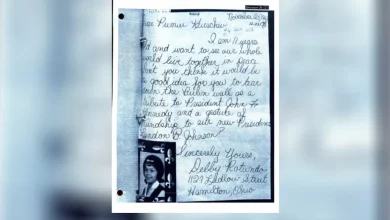 November
Premier
I am 11 years
old and want to see our whole
world live together in peace
Don't you think it would be
a good idea for you to tear
down the Berlin wall as a
tribute to President John F.
Kennedy and a gesture of
friendship to our new President
Lyndon B Johnson?
Sincerely Yours,
Debby Rotundo
1129 Ludlow Street
Hamilton, Ohio